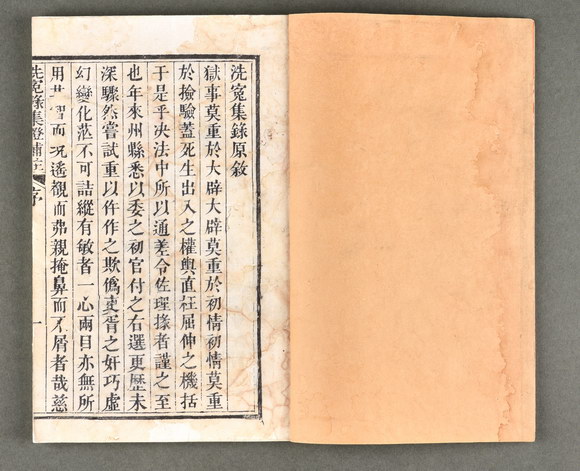 洗冤集錄原敘
獄事莫重於大辟大辟莫重於初情初情莫重
於撿驗蓋死生出入之權輿直枉屈伸之機括
于是乎決法中所以通差令佐理掾者謹之至
也年來州縣悉以委之初官付之右選更歷未
深驟然嘗試重以仵作之欺僞吏胥之奸巧虛
幻變化茫不可詰縱有敏者一心兩目亦無所
用其智而况遙視而弗親掩鼻而不屑者哉慈
洗冤錄集證補註 序 一